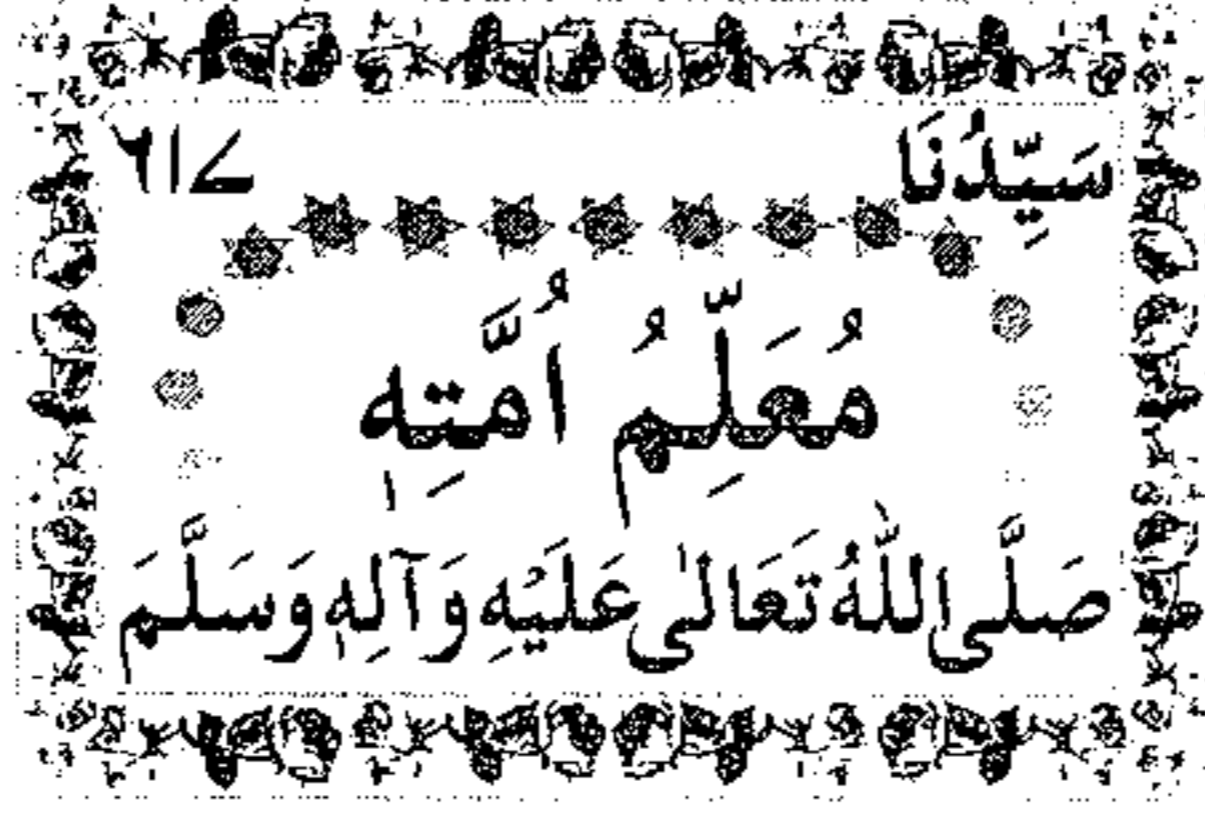 سَيِّدُنَا ٦١٧
مُعَلِّمُ اُمَّتِهٖ
صَلَّى اللّٰهُ تَعَالٰى عَلَيْهِ وَآلِهٖ وَسَلَّمَ